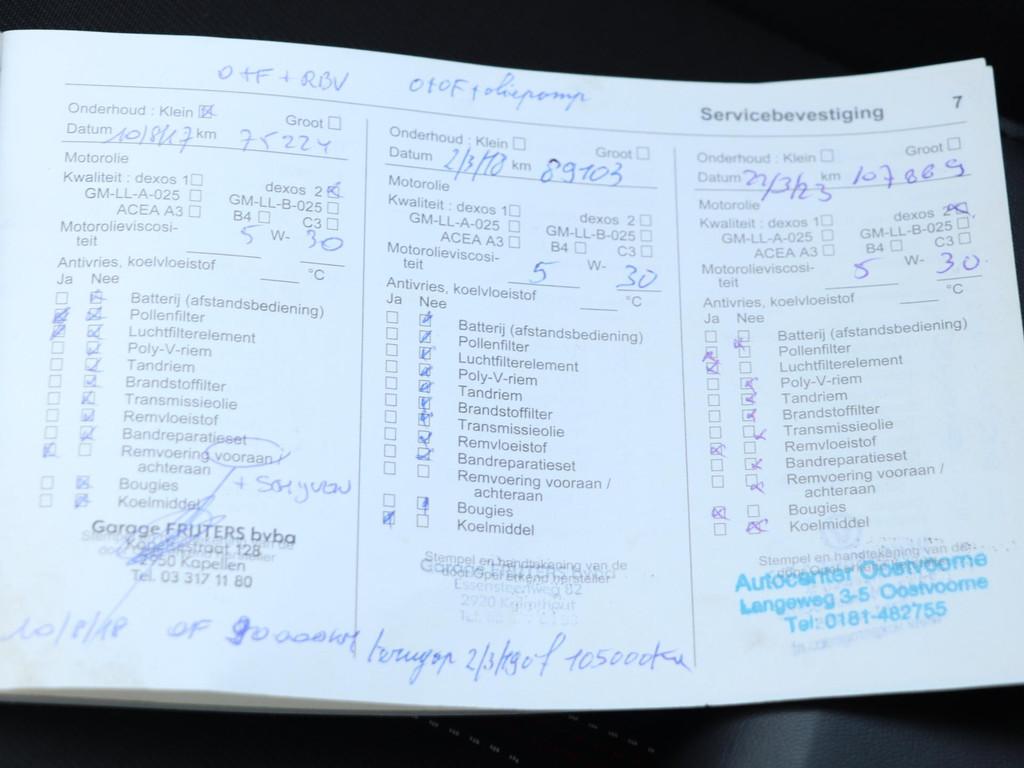 O+F + RBV
O+OF + oliepomp
Servicebevestiging 7
Onderhoud : Klein Groot
Datum 10/8/17 km 75224
Motorolie
Kwaliteit : dexos 1 dexos 2
GM-LL-A-025 GM-LL-B-025
ACEA A3 B4 C3
Motorolieviscosi-
teit 5 W- 30
Antivries, koelvloeistof °C
Ja Nee
Batterij (afstandsbediening)
Pollenfilter
Luchtfilterelement
Poly-V-riem
Tandriem
Brandstoffilter
Transmissieolie
Remvloeistof
Bandreparatieset
Remvoering vooraan /
achteraan
+ SCHYVEN
Bougies
Koelmiddel
Garage FRUTERS bvba
128
2950 Kapellen
Tel. 03 317 11 80
10/8/18 OF 90000km
Onderhoud : Klein Groot
Datum 2/3/18 km 89103
Motorolie
Kwaliteit : dexos 1 dexos 2
GM-LL-A-025 GM-LL-B-025
ACEA A3 B4 C3
Motorolieviscosi-
teit 5 W- 30
Antivries, koelvloeistof °C
Ja Nee
Batterij (afstandsbediening)
Pollenfilter
Luchtfilterelement
Poly-V-riem
Tandriem
Brandstoffilter
Transmissieolie
Remvloeistof
Bandreparatieset
Remvoering vooraan /
achteraan
Bougies
Koelmiddel
Stempel en handtekening van de
door Opel erkend hersteller
82
2920 Kalmthout
terug op 2/3/19 of 105000km
Onderhoud : Klein Groot
Datum 22/3/23 km 107869
Motorolie
Kwaliteit : dexos 1 dexos 2
GM-LL-A-025 GM-LL-B-025
ACEA A3 B4 C3
Motorolieviscosi-
teit 5 W- 30
Antivries, koelvloeistof °C
Ja Nee
Batterij (afstandsbediening)
Pollenfilter
Luchtfilterelement
Poly-V-riem
Tandriem
Brandstoffilter
Transmissieolie
Remvloeistof
Bandreparatieset
Remvoering vooraan /
achteraan
Bougies
Koelmiddel
Stempel en handtekening van de
door Opel erkend hersteller
Autocenter Oostvoorne
Langeweg 3-5 Oostvoorne
Tel: 0181-482755